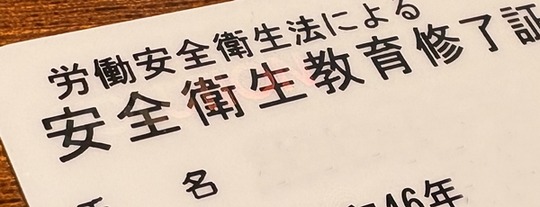 労働安全衛生法による
安全衛生教育修了証
氏 名
46年